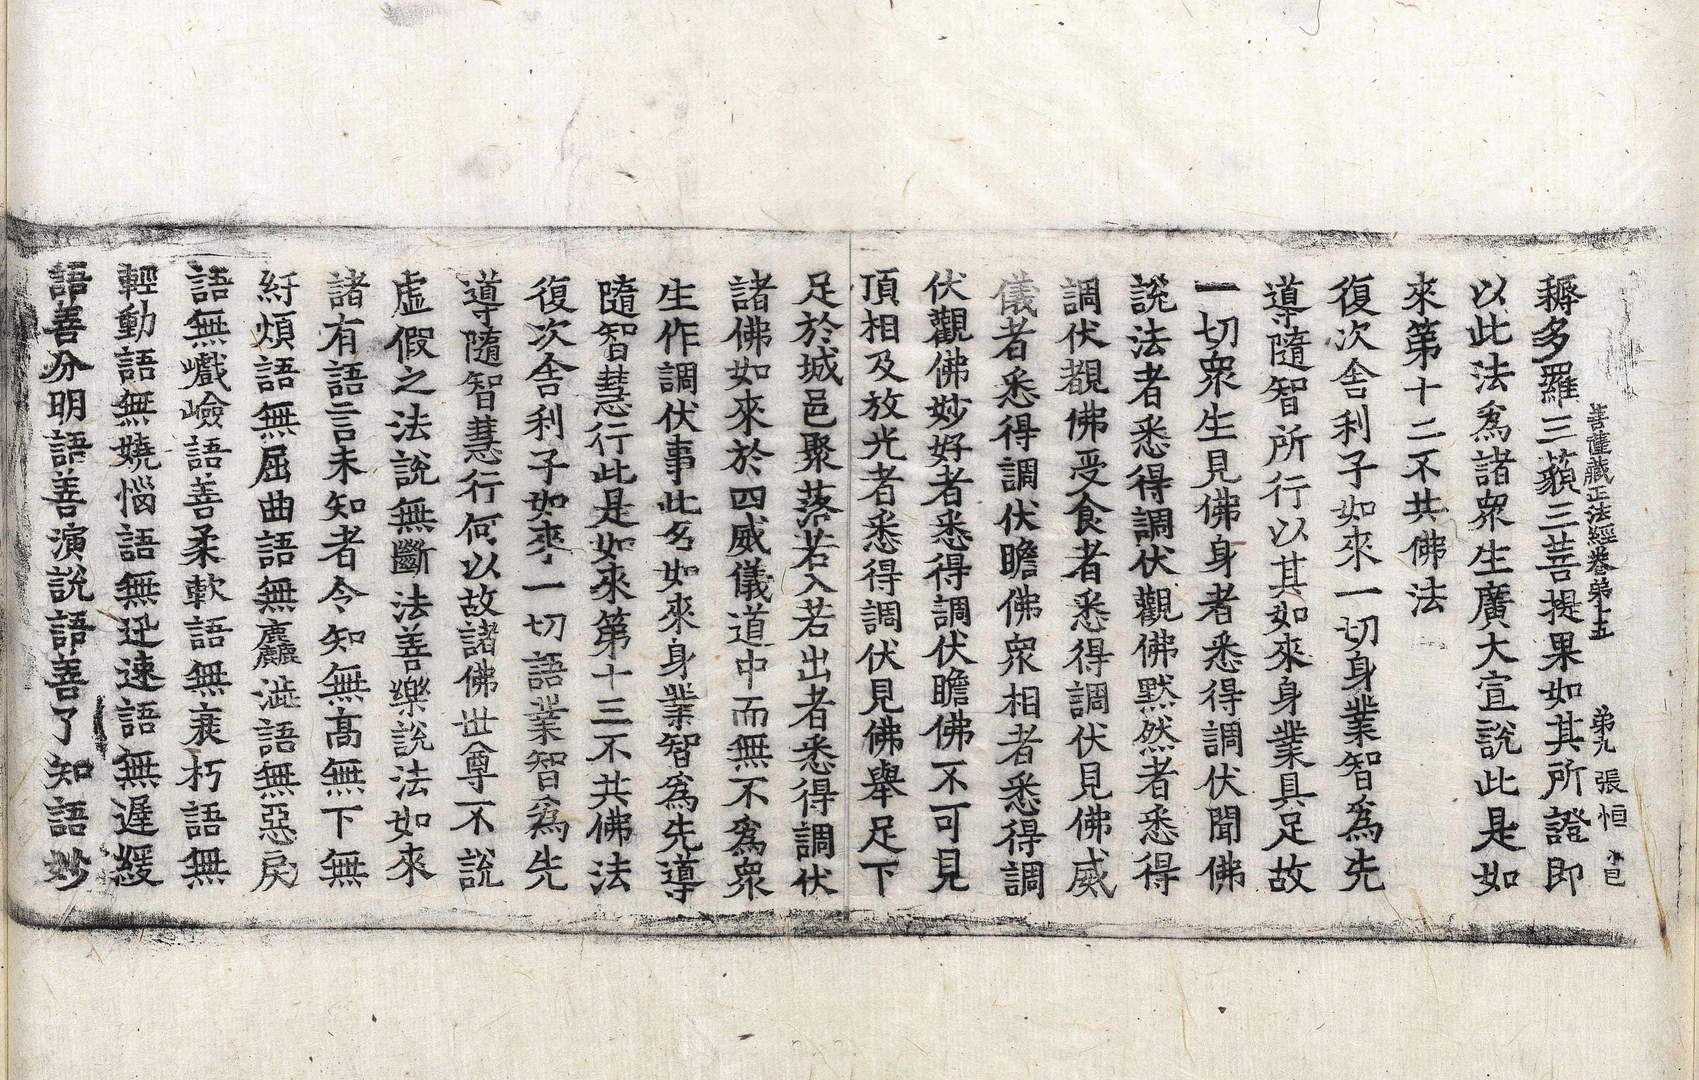 菩薩藏正法經卷第十五 第九 張 恒 皀
耨多羅三藐三菩提果如其所證即
以此法爲諸衆生廣大宣說此是如
來第十二不共佛法
復次舍利子如來一切身業智爲先
導隨智所行以其如來身業具足故
一切衆生見佛身者悉得調伏聞佛
說法者悉得調伏觀佛默然者悉得
調伏覩佛受食者悉得調伏見佛威
儀者悉得調伏瞻佛衆相者悉得調
伏觀佛妙好者悉得調伏瞻佛不可見
頂相及放光者悉得調伏見佛舉足下
足於城邑聚落若入若出者悉得調伏
諸佛如來於四威儀道中而無不爲衆
生作調伏事此名如來身業智爲先導
隨智慧行此是如來第十三不共佛法
復次舍利子如來一切語業智爲先
導隨智慧行何以故諸佛世尊不說
虛假之法說無斷法善樂說法如來
諸有語言未知者令知無高無下無
紆煩語無屈曲語無麤澁語無惡戾
語無巇嶮語善柔軟語無衰朽語無
輕動語無嬈惱語無迅速語無遲緩
語善分明語善演說語善了知語妙